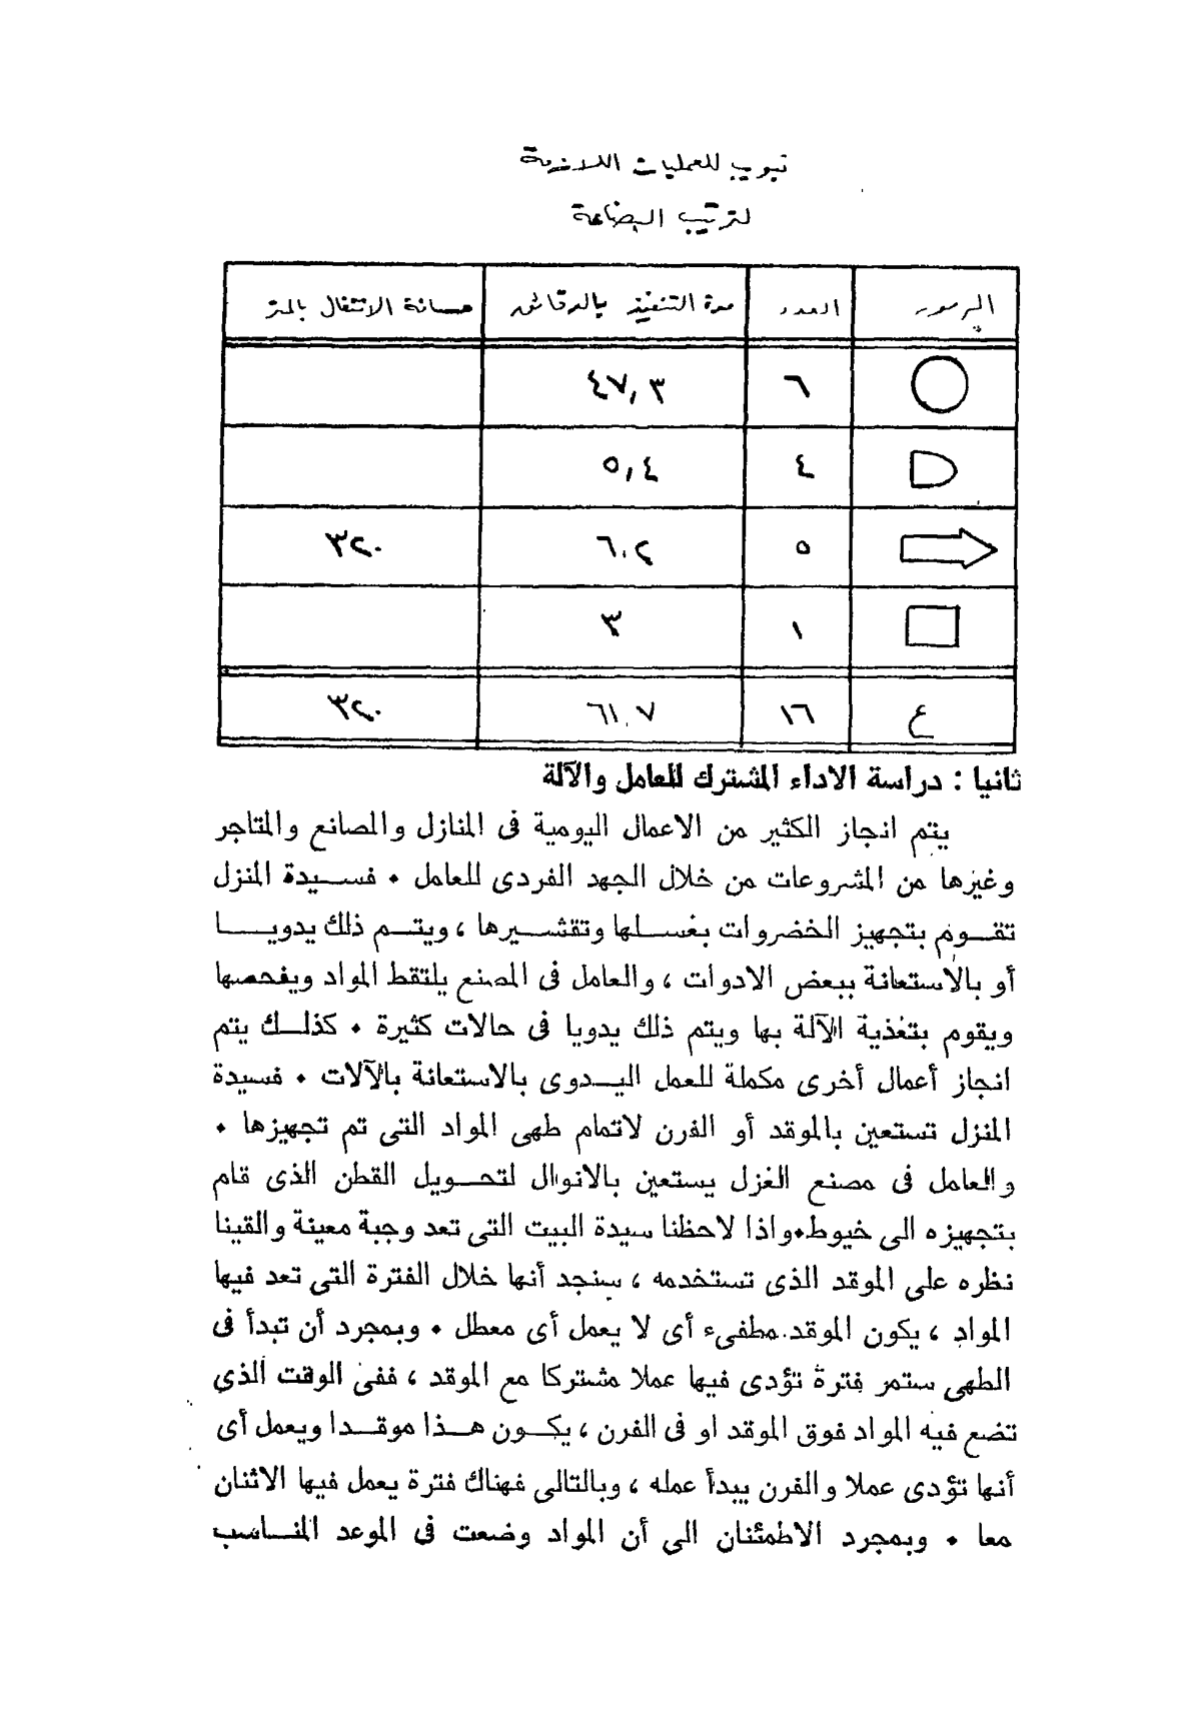 تبويب للعمليات اللازمة
لترتيب البضاعة
الرموز العدد مدة التنفيذ بالدقائق مسافة الانتقال بالمتر
٦ ٤٧,٣
٤ ٥,٤
٥ ٦,٢ ٣٢٠
١ ٣
ع ١٦ ٦١,٧ ٣٢٠
ثانيا : دراسة الاداء المشترك للعامل والآلة
يتم انجاز الكثير من الاعمال اليومية فى المنازل والمصانع والمتاجر
وغيرها من المشروعات من خلال الجهد الفردى للعامل • فسيدة المنزل
تقوم بتجهيز الخضروات بغسلها وتقشيرها ، ويتم ذلك يدويا
أو بالاستعانة ببعض الادوات ، والعامل فى المصنع يلتقط المواد ويفحصها
ويقوم بتغذية الآلة بها ويتم ذلك يدويا فى حالات كثيرة • كذلك يتم
انجاز أعمال أخرى مكملة للعمل اليدوى بالاستعانة بالآلات • فسيدة
المنزل تستعين بالموقد أو الفرن لاتمام طهى المواد التى تم تجهيزها •
والعامل فى مصنع الغزل يستعين بالانوال لتحويل القطن الذى قام
بتجهيزه الى خيوط•واذا لاحظنا سيدة البيت التى تعد وجبة معينة والقينا
نظره على الموقد الذى تستخدمه ، سنجد أنها خلال الفترة التى تعد فيها
المواد ، يكون الموقد مطفىء أى لا يعمل أى معطل • وبمجرد أن تبدأ فى
الطهى ستمر فترة تؤدى فيها عملا مشتركا مع الموقد ، ففى الوقت الذى
تضع فيه المواد فوق الموقد او فى الفرن ، يكون هذا موقدا ويعمل أى
أنها تؤدى عملا والفرن يبدأ عمله ، وبالتالى فهناك فترة يعمل فيها الاثنان
معا • وبمجرد الاطمئنان الى أن المواد وضعت فى الموعد المناسب